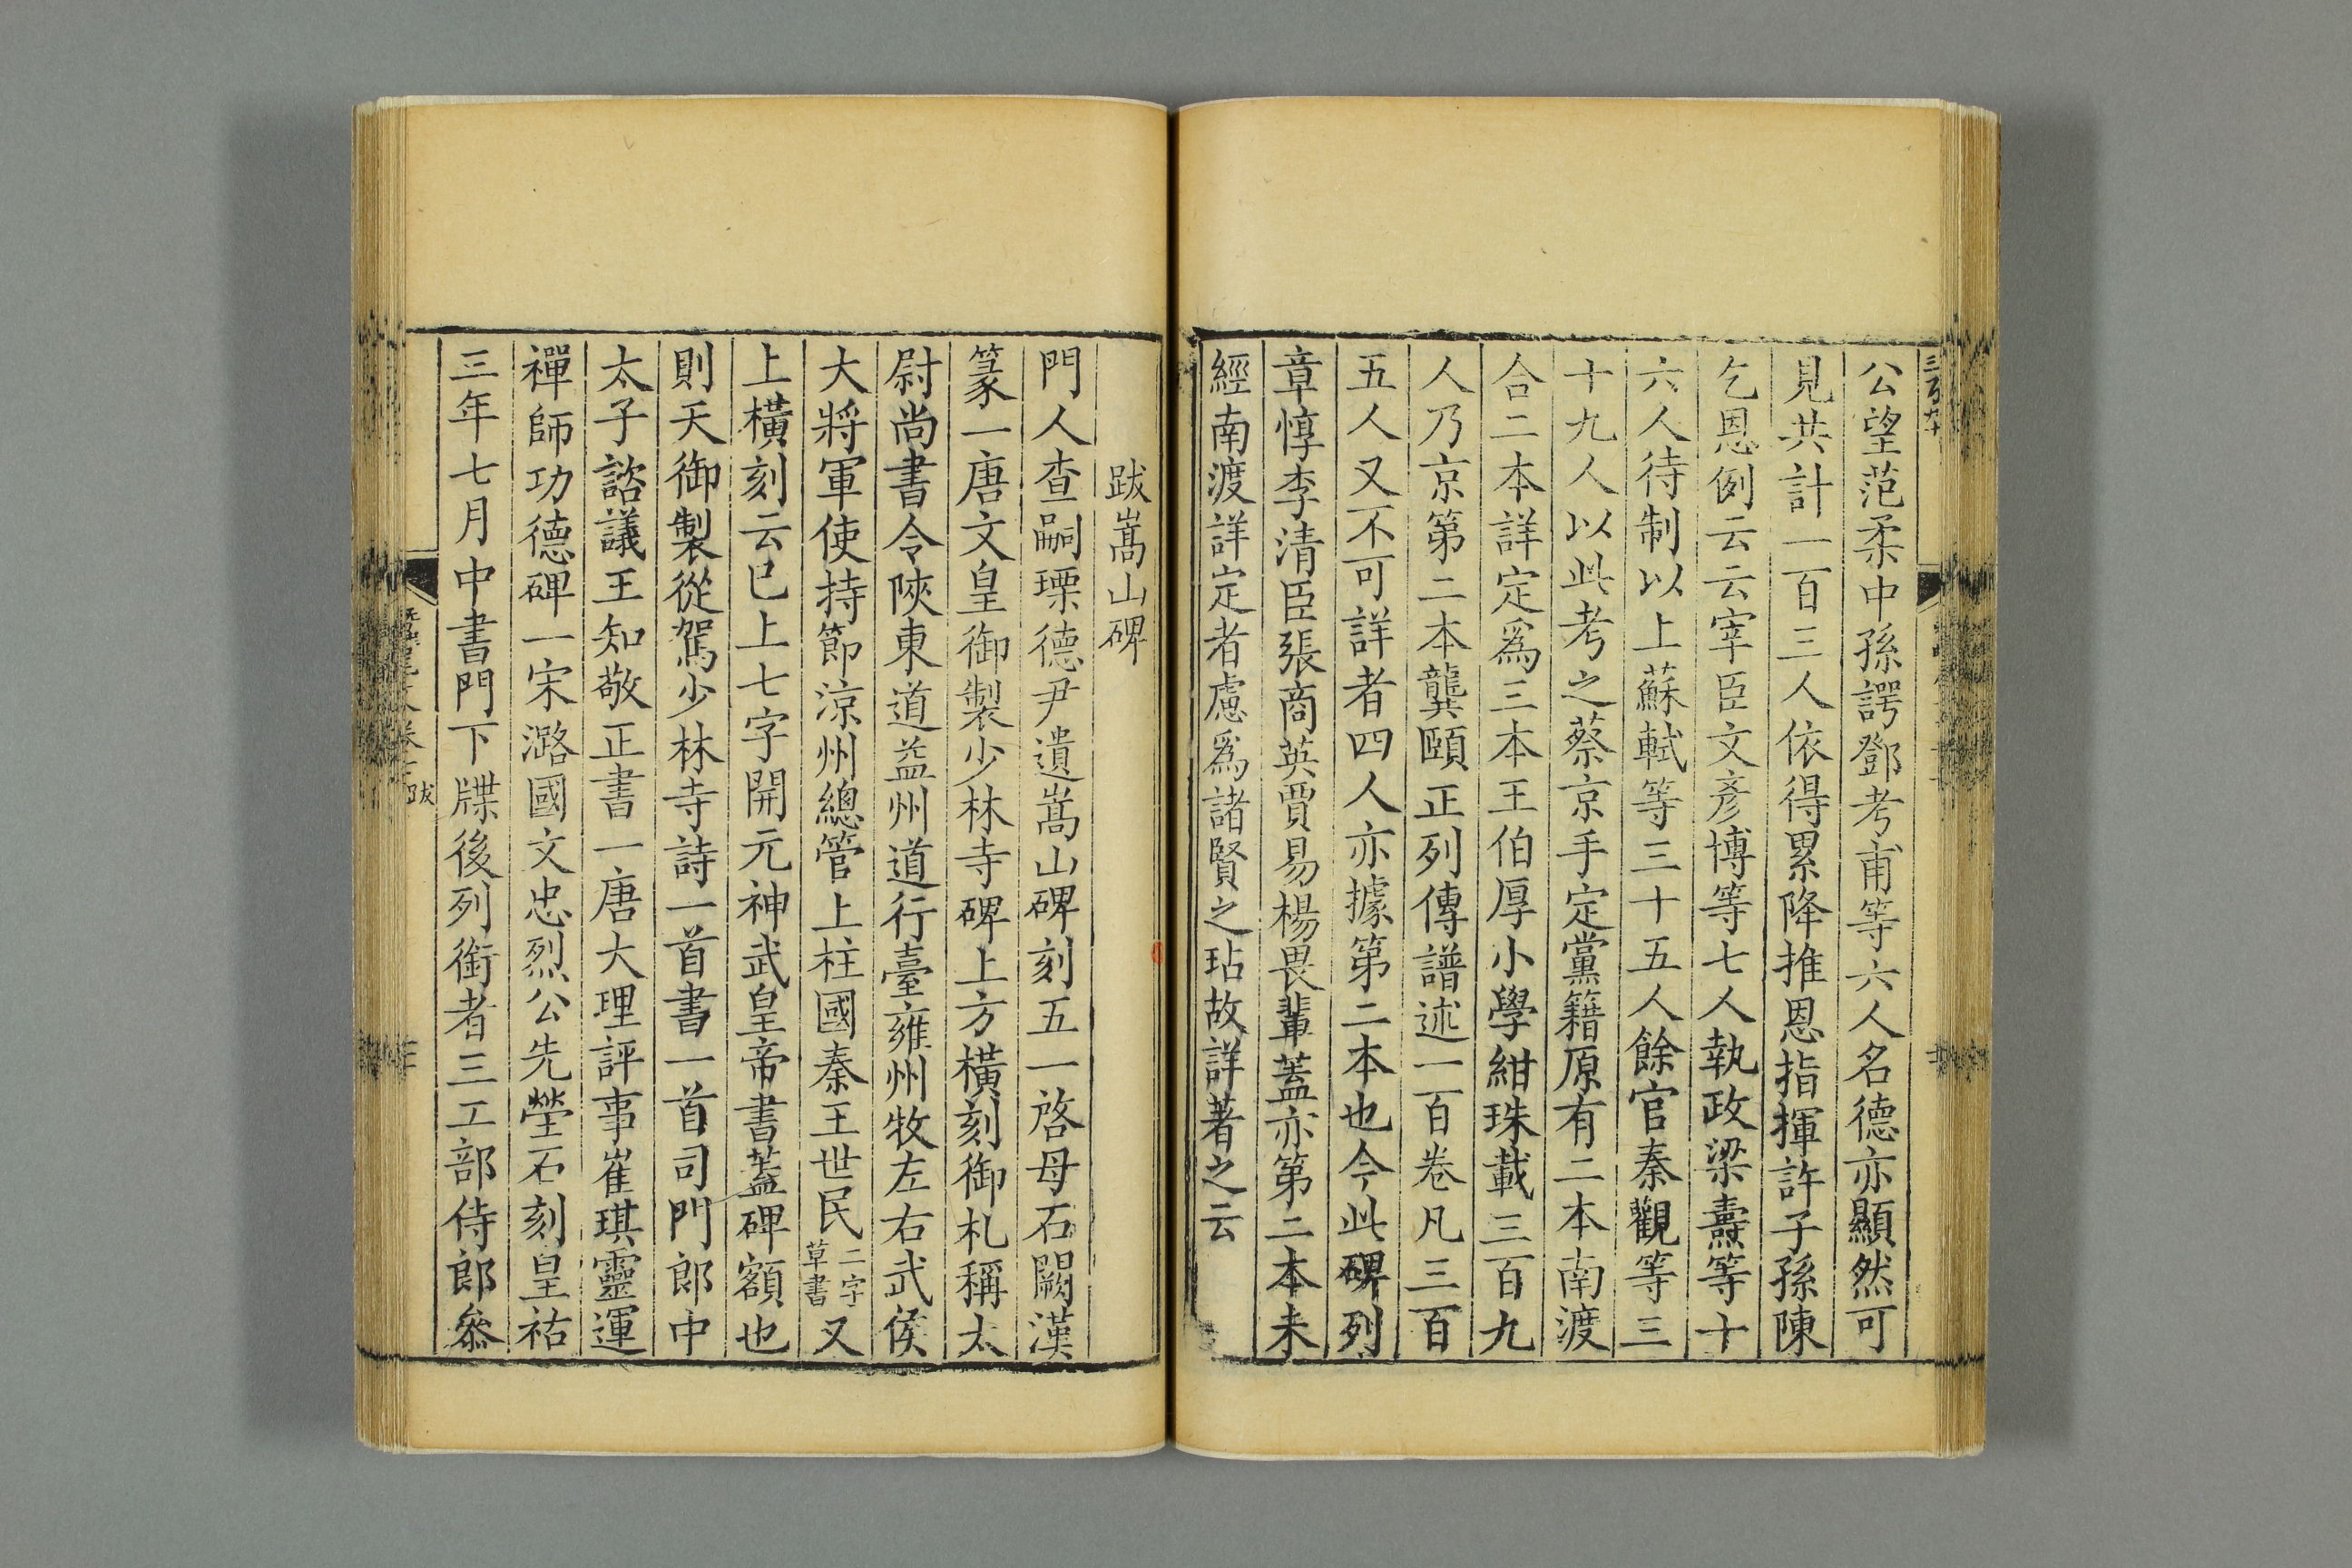 公望范柔中孫諤鄧考甫等六人名德亦顯然可
見共計一百三人依得累降推恩指揮許子孫陳
乞恩例云云宰臣文彥博等七人執政梁燾等十
六人待制以上蘇軾等三十五人餘官秦觀等三
十九人以此考之蔡京手定黨籍原有二本南渡
合二本詳定爲三本王伯厚小學紺珠載三百九
人乃京第二本龔頤正列傳譜述一百卷凡三百
五人又不可詳者四人亦據第二本也今此碑列
章惇李清臣張商英賈易楊畏輩蓋亦第二本未
經南渡詳定者慮爲諸賢之玷故詳著之云
跋嵩山碑
門人查嗣瑮德尹遺嵩山碑刻五一啓母石闕漢
篆一唐文皇御製少林寺碑上方橫刻御札稱太
尉尚書令陝東道益州道行臺雍州牧左右武侯
大將軍使持節涼州總管上柱國秦王世民二字草書又
上橫刻云巳上七字開元神武皇帝書蓋碑額也
則天御製從駕少林寺詩一首書一首司門郎中
太子諮議王知敬正書一唐大理評事崔琪靈運
禪師功德碑一宋潞國文忠烈公先塋石刻皇祐
三年七月中書門下牒後列銜者三工部侍郎叅